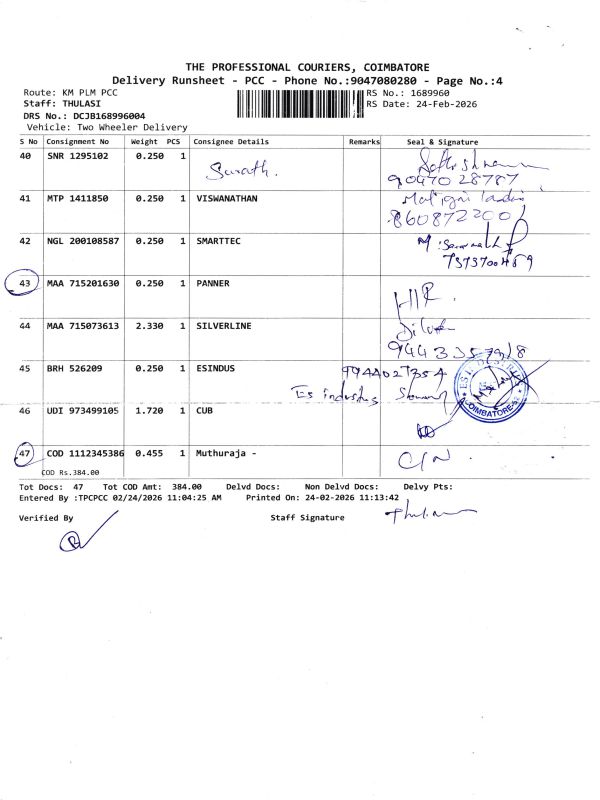 THE PROFESSIONAL COURIERS, COIMBATORE
Delivery Runsheet - PCC - Phone No.:9047080280 - Page No.:4
Route: KM PLM PCC RS No.: 1689960
Staff: THULASI RS Date: 24-Feb-2026
DRS No.: DCJB168996004
Vehicle: Two Wheeler Delivery
S No Consignment No Weight PCS Consignee Details Remarks Seal & Signature
40 SNR 1295102 0.250 1 Sarath.
9047028787
41 MTP 1411850 0.250 1 VISWANATHAN
8608722001
42 NGL 200108587 0.250 1 SMARTTEC
43 MAA 715201630 0.250 1 PANNER
44 MAA 715073613 2.330 1 SILVERLINE
45 BRH 526209 0.250 1 ESINDUS 9944027354
Es industries
46 UDI 973499105 1.720 1 CUB
COIMBATORE
47 COD 1112345386 0.455 1 Muthuraja -
COD Rs.384.00
Tot Docs: 47 Tot COD Amt: 384.00 Delvd Docs: Non Delvd Docs: Delvy Pts:
Entered By :TPCPCC 02/24/2026 11:04:25 AM Printed On: 24-02-2026 11:13:42
Verified By Staff Signature